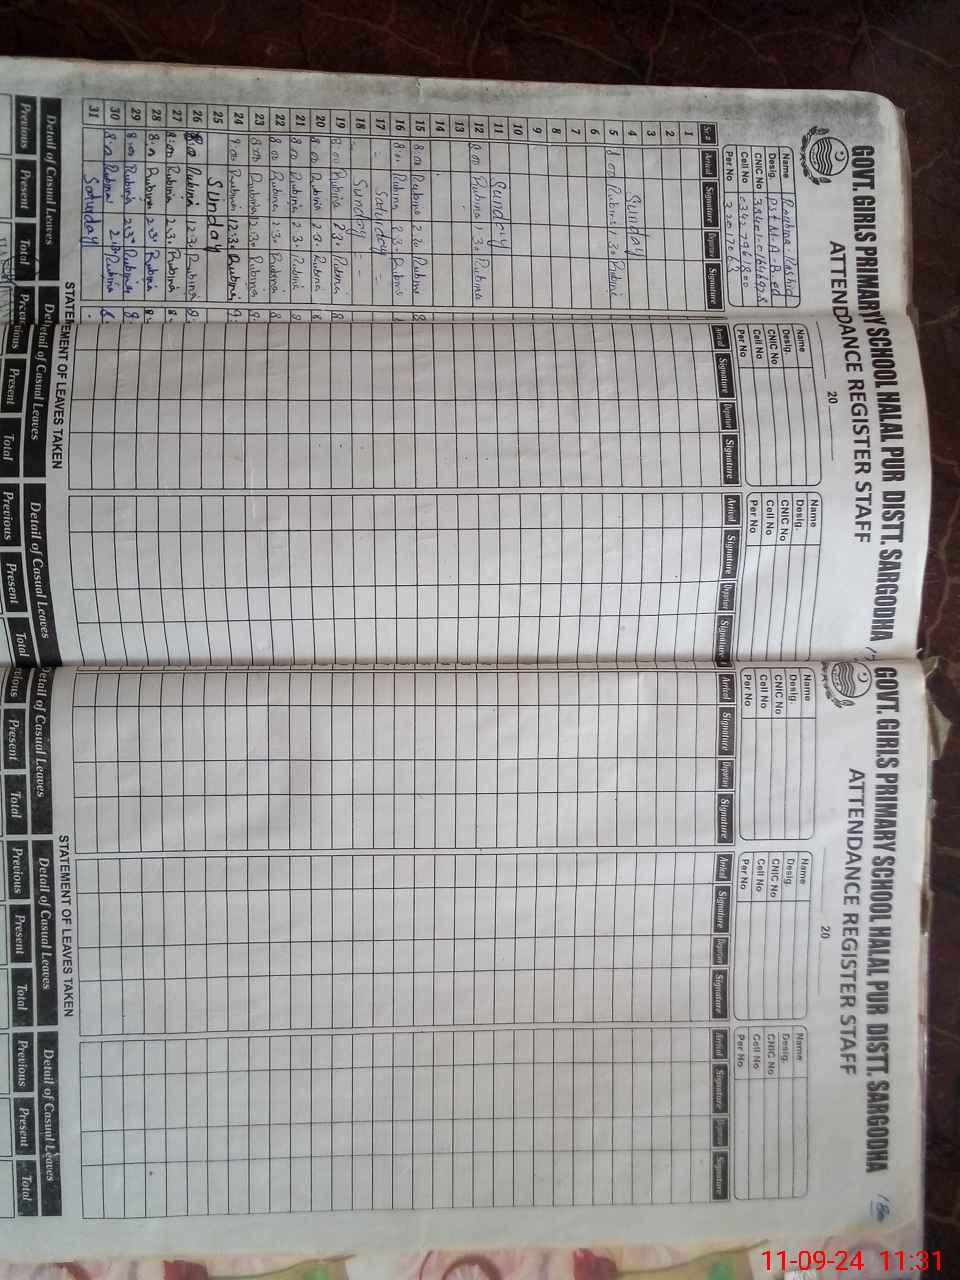 GOVT. GIRLS PRIMARY SCHOOL HALAL PUR DISTT. SARGODHA
ATTENDANCE REGISTER STAFF
20
Name Rubina Rashid
Desig.
CNIC No
Cell No
Per No
Name
Desig.
CNIC No
Cell No
Per No
Name
Desig.
CNIC No
Cell No
Per No
Sr.# Arrival Signature Departure Signature
Arrival Signature Departure Signature
Arrival Signature Departure Signature
1
2
3
4 Sunday
5 8.00 Rubina 1.30 Rubina
6
7
8
9
10
11 Sunday
12 8.00 Rubina 1.30 Rubina
13
14
15 8.00 Rubina 2.30 Rubina
16 8.00 Rubina 2.30 Rubina
17 Saturday
18 Sunday
19 8.00 Rubina 2.30 Rubina
20 8.00 Rubina 2.30 Rubina
21 8.00 Rubina 2.30 Rubina
22 8.00 Rubina 2.30 Rubina
23 8.00 Rubina 12.30 Rubina
24 Rubina 12.30 Rubina
25 Sunday
26 8.00 Rubina 12.30 Rubina
27 8.00 Rubina 2.30 Rubina
28 8.00 Rubina 2.30 Rubina
29 8.00 Rubina 2.30 Rubina
30 8.00 Rubina Rubina
31 Saturday
STATEMENT OF LEAVES TAKEN
Detail of Casual Leaves
Previous Present Total
Detail of Casual Leaves
Previous Present Total
Detail of Casual Leaves
Previous Present Total
GOVT. GIRLS PRIMARY SCHOOL HALAL PUR DISTT. SARGODHA
ATTENDANCE REGISTER STAFF
20
Name
Desig.
CNIC No
Cell No
Per No
Name
Desig.
CNIC No
Cell No
Per No
Name
Desig.
CNIC No
Cell No
Per No
Arrival Signature Departure Signature
Arrival Signature Departure Signature
Arrival Signature Departure Signature
STATEMENT OF LEAVES TAKEN
Detail of Casual Leaves
Present Total
Detail of Casual Leaves
Previous Present Total
Detail of Casual Leaves
Previous Present Total
11-09-24 11:31